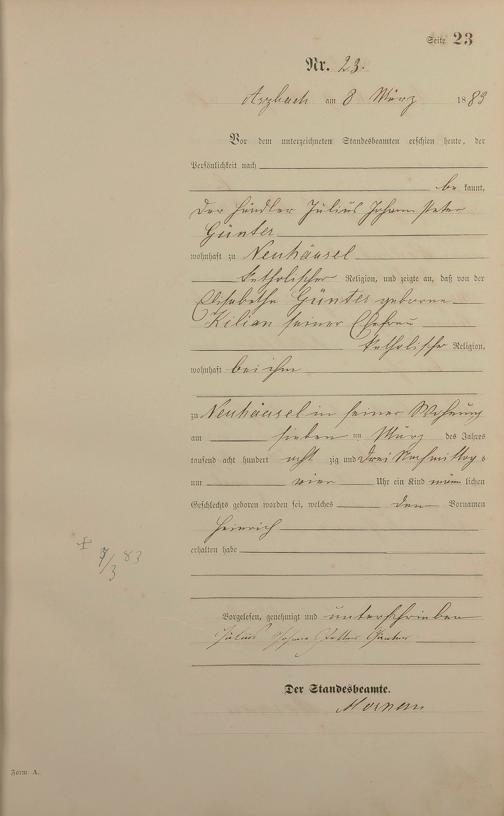 Seite 23
Nr. 23.
Arzbach am 8 März 1883
Vor dem unterzeichneten Standesbeamten erschien heute, der
Persönlichkeit nach
be kannt,
der Händler Julius Johann Peter
Günter
wohnhaft zu Neuhäusel
katholischer Religion, und zeigte an, daß von der
Elisabethe Günter geborne
Kilian seiner Ehefrau
katholischer Religion,
wohnhaft bei ihm
zu Neuhäusel in seiner Wohnung
am sieben ten März des Jahres
tausend acht hundert acht zig und drei Nachmittags
um vier Uhr ein Kind männ lichen
Geschlechts geboren worden sei, welches den Vornamen
Heinrich
erhalten habe
+ 7/3 83
Vorgelesen, genehmigt und unterschrieben
Julius Johann Günter
Der Standesbeamte.
Form A.